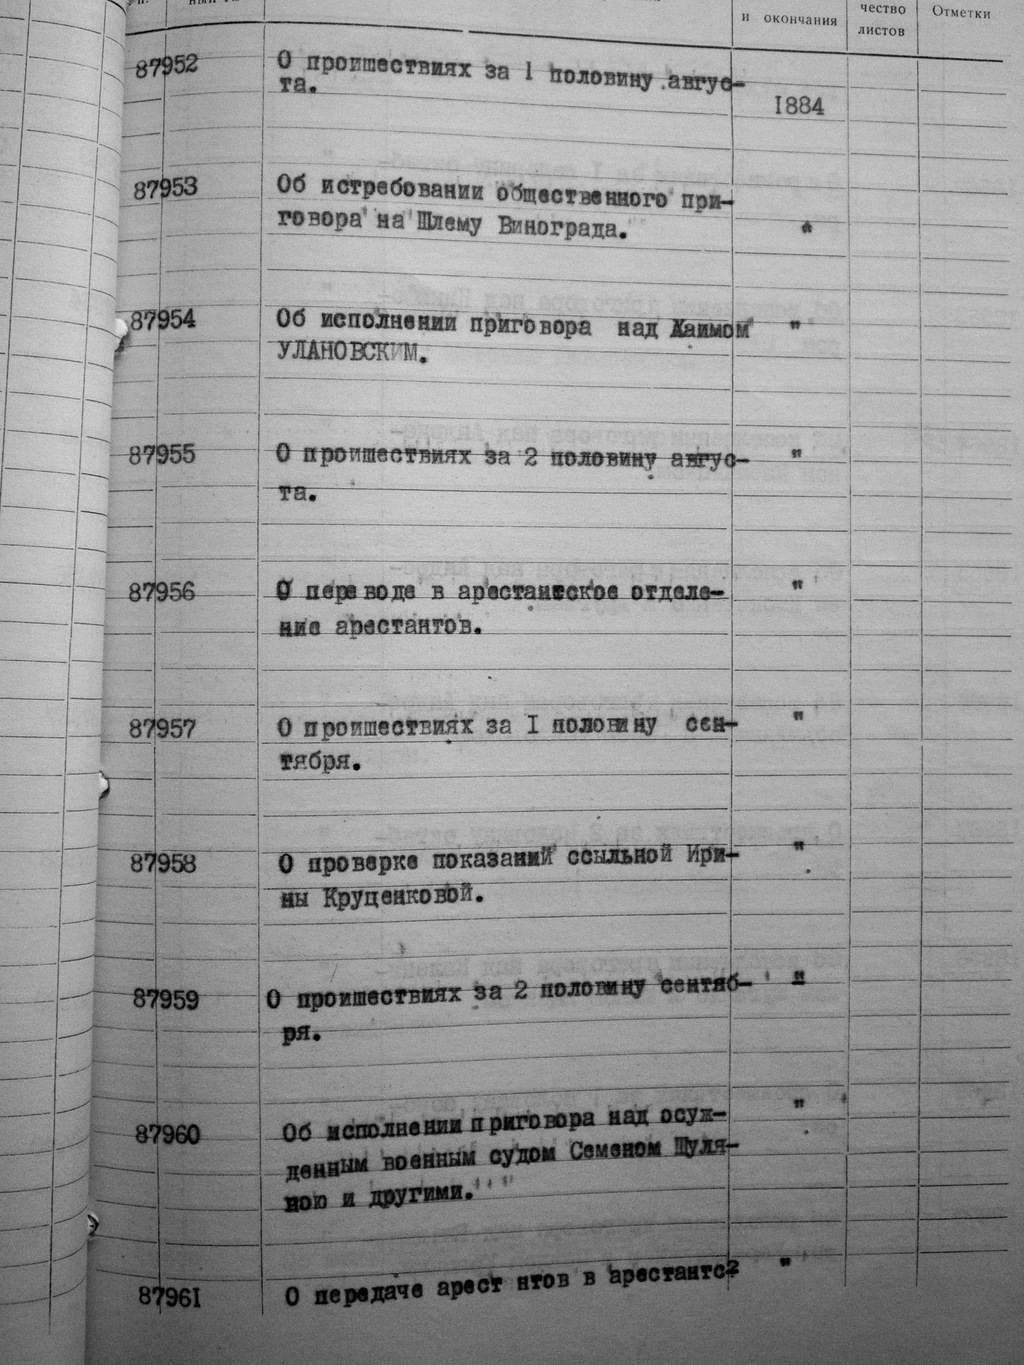 и окончания
чество
листов
Отметки
87952 О проишествиях за 1 половину авгус-
та.
1884
87953 Об истребовании общественного при-
говора на Шлему Винограда. "
87954 Об исполнении приговора над Хаимом "
УЛАНОВСКИМ.
87955 О проишествиях за 2 половину авгус- "
та.
87956 О переводе в арестантское отделе- "
ние арестантов.
87957 О проишествиях за I половину сен- "
тября.
87958 О проверке показаний ссыльной Ири- "
ны Круценковой.
87959 О проишествиях за 2 половину сентяб- "
ря.
87960 Об исполнении приговора над осуж- "
денным военным судом Семеном Шуля-
ною и другими.
87961 О передаче арест нтов в арестантс2 "